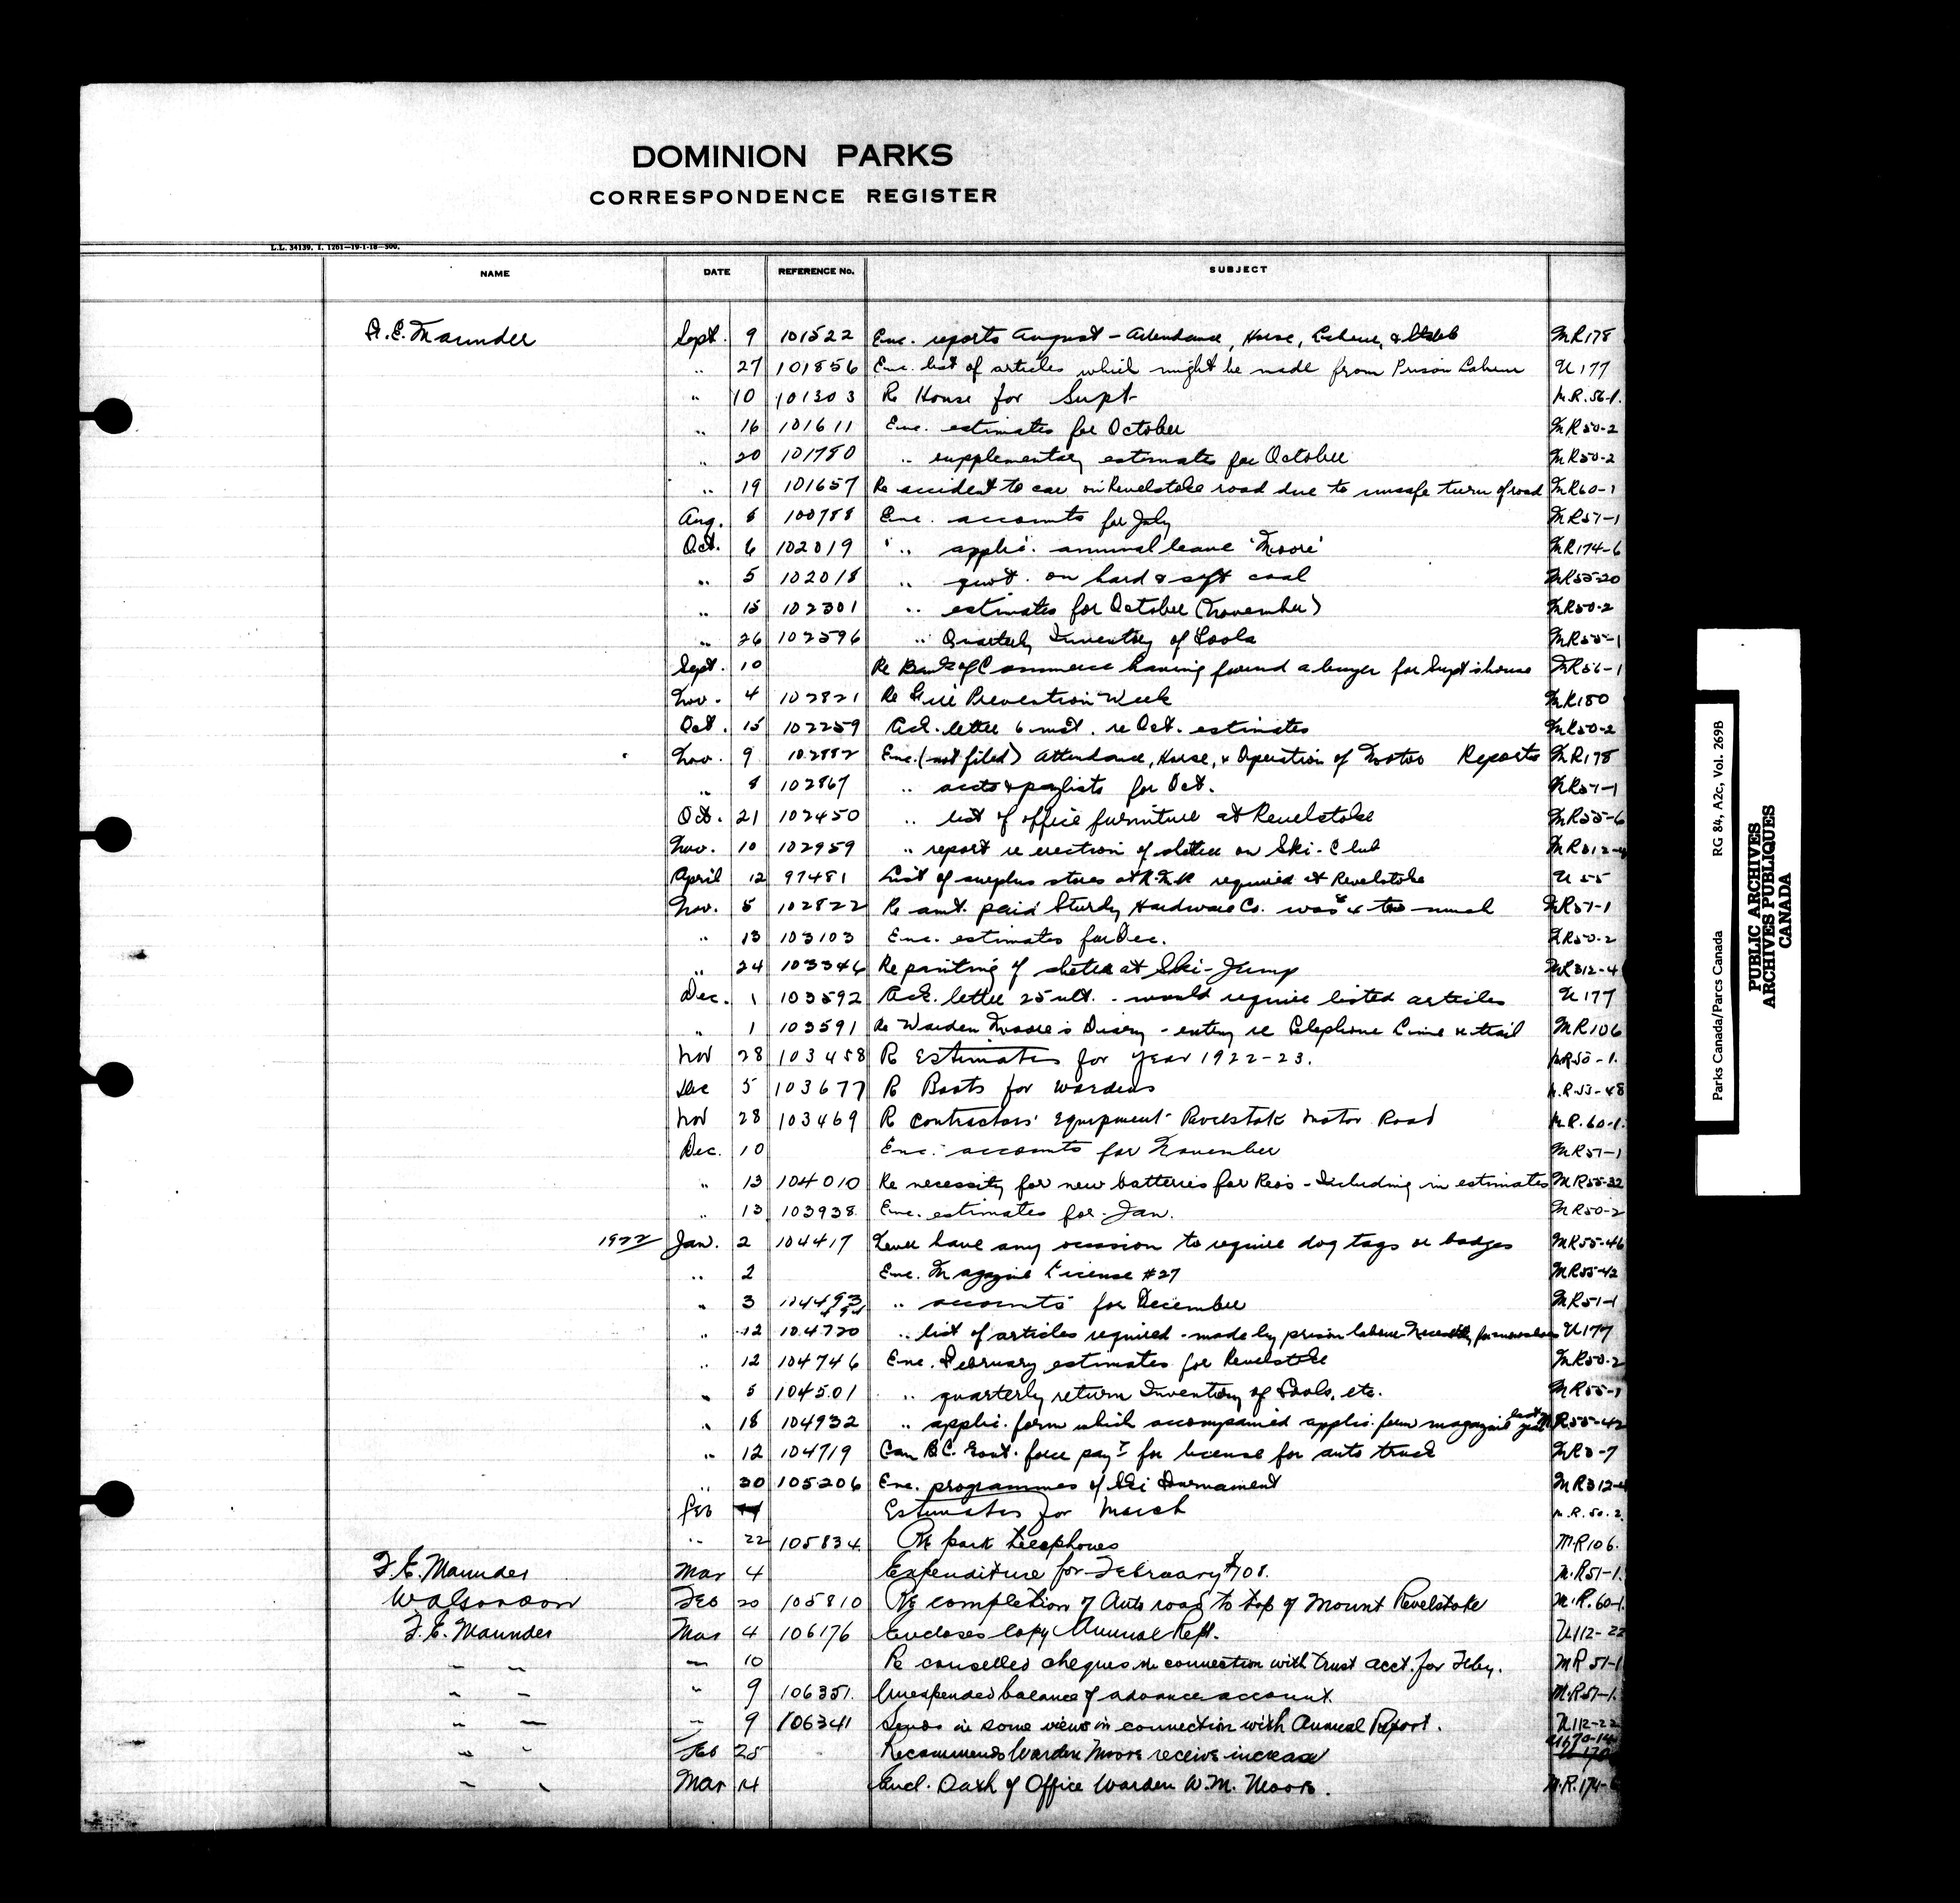 DOMINION PARKS
CORRESPONDENCE REGISTER
L.L. 34139. I. 1261—19-1-18—500.
NAME DATE REFERENCE No. SUBJECT
F. E. Maunder Sept. 9 101522 Enc. reports August - Attendance, Horse, Labour, & MR178
" 27 101856 Enc. list of articles which might be made from Prison Labour U177
" 10 101303 Re House for Supt. M.R.56-1.
" 16 101611 Enc. estimates for October MR50-2
" 20 101780 " supplementary estimates for October MR50-2
" 19 101657 Re accident to car on Revelstoke road due to unsafe turn of road MR60-1
Aug. 8 100788 Enc. accounts for July MR57-1
Oct. 6 102019 " applic. annual leave 'Moore' MR174-6
" 5 102018 " quot. on hard & soft coal MR55-20
" 15 102301 " estimates for October (November) MR50-2
" 26 102596 " Quarterly Inventory of Tools MR55-1
Sept. 10 Re Bank of Commerce having found a buyer for Supt's house MR56-1
Nov. 4 102821 Re Fire Prevention Week MR180
Oct. 15 102259 Ack. letter 6 inst. re Oct. estimates MR50-2
Nov. 9 102882 Enc. (not filed) Attendance, Horse, & Operation of Motor Reports MR178
" 8 102867 " accts & paylists for Oct. MR57-1
Oct. 21 102450 " list of office furniture at Revelstoke MR55-6
Nov. 10 102959 " report re erection of shelter on Ski-Club MR312-4
April 12 97481 List of surplus stores at required at Revelstoke U55
Nov. 5 102822 Re amt. paid Sturdy Hardware Co. was too much MR57-1
" 13 103103 Enc. estimates for Dec. MR50-2
" 24 103346 Re painting of shelter at Ski-Jump MR312-4
Dec. 1 103592 Ack. letter 25 ult. - would require listed articles U177
" 1 103591 Re Warden Moore's Diary - entry re Telephone Line & trail MR106
Nov 28 103458 Re Estimates for year 1922-23. MR50-1.
Dec 5 103677 Re Boots for wardens M.R.53-48
Nov 28 103469 Re Contractors' Equipment Revelstoke Motor Road M.R.60-1.
Dec. 10 Enc. accounts for November MR57-1
" 13 104010 Re necessity for new batteries for Reo's - Including in estimates MR55-32
" 13 103938 Enc. estimates for Jan. MR50-2
1922 Jan. 2 104417 Never have any occasion to require dog tags or badges MR55-46
" 2 Enc. Magazine License #27 MR55-42
" 3 104493 " accounts for December MR51-1
" 12 104720 " list of articles required - made by prison labour - U177
" 12 104746 Enc. February estimates for Revelstoke MR50-2
" 5 104501 " quarterly return Inventory of Tools, etc. MR55-1
" 18 104932 " applic. form which accompanied applic. form magazine last year MR55-42
" 12 104719 Can B.C. Govt. force payt. for license for auto truck MR3-7
" 30 105206 Enc. programmes of Ski Tournament MR312-4
Feb Estimates for March M.R.50-2.
" 22 105834 Re park telephones MR106.
F. E. Maunder Mar 4 Expenditure for February $708. M.R51-1.
Feb 20 105810 Re completion of Auto road to top of Mount Revelstoke M.R.60-1.
F. E. Maunder Mar 4 106176 Encloses Copy Annual Rept. U112-22
" " " 10 Re cancelled cheques in connection with trust acct. for Feby. MR51-1
" " " 9 106351. Unexpended balance of advance account. M.R57-1.
" " " 9 106341 Sends in some views in connection with Annual Report. U112-22
" " Feb 25 Recommends Warden Moore receive increase
" " Mar 14 Encl. Oath of Office Warden W. M. Moore. M.R.174-6
Parks Canada/Parcs Canada RG 84, A2c, Vol. 269B
PUBLIC ARCHIVES
ARCHIVES PUBLIQUES
CANADA